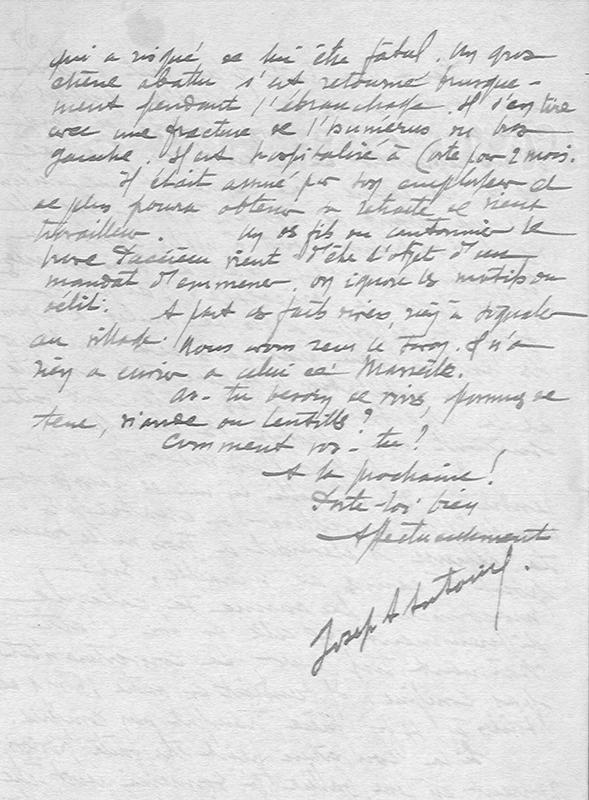 qui a risqué de lui être fatal. Un gros
chêne abattu s'est retourné brusque-
ment pendant l'ébranchage. Il s'en tire
avec une fracture de l'humérus du bras
gauche. Il est hospitalisé à Corte pour 2 mois.
Il était assuré par son employeur et
de plus pourra obtenir sa retraite de vieux
travailleur. Un des fils du cantonnier le
vient d'être l'objet d'un
mandat d'emmener, on ignore les motifs du
délit. A part ces faits divers, rien à signaler
au village. Nous avons reçu le . Il n'a
rien à envier à celui de Marseille.
As-tu besoin de vivres, pommes de
terre, viande ou lentilles?
Comment vas-tu?
A la prochaine!
Porte-toi bien
Affectueusement
Joseph Antoine.